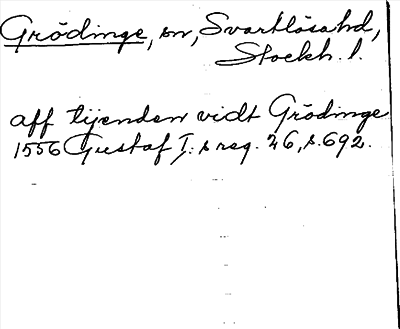 Grödinge, sn, Svartlösa hd,
Stockh. l.
aff tijenden vidt Grödinge
1556 Gustaf I:s reg. 26, s. 692.